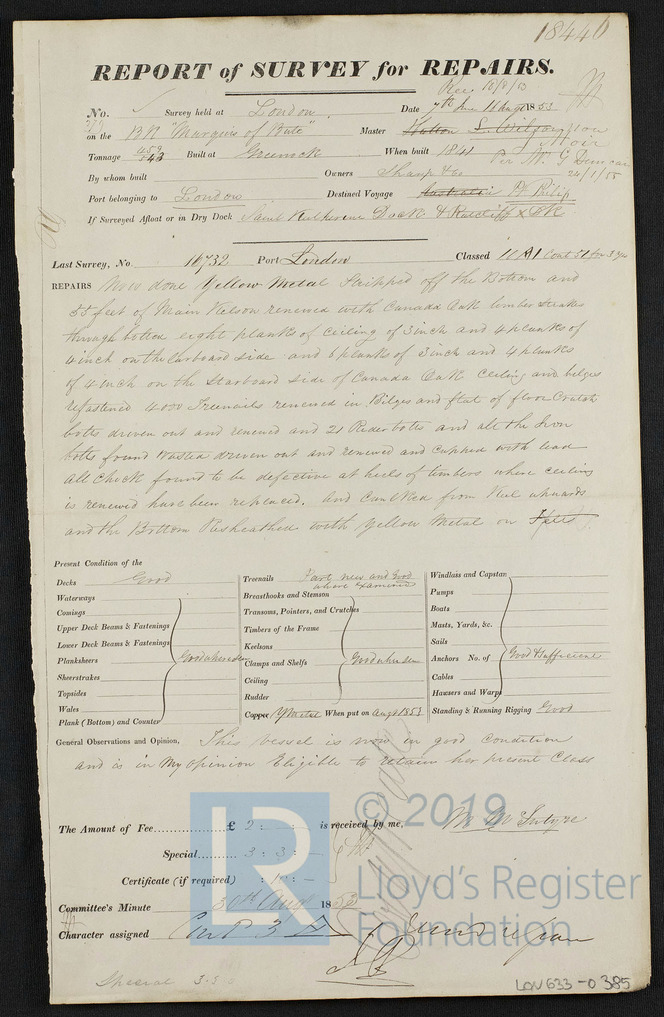 18440
REPORT of SURVEY for REPAIRS.
Rec 10/8/53
No. Survey held at London Date 7th June 16 Augt 1853
on the BK "Marquis of Bute" Master Hutton S. Wilson
Tonnage 459 543 Built at Greenock When built 1841 Per Mr G Duncan
24/1/55
By whom built Owners Sharp & Co
Port belonging to London Destined Voyage Australia Pt Philip
If Surveyed Afloat or in Dry Dock Saint Katherine Dock & Ratcliff X DK
Last Survey, No. 16732 Port London Classed 11 A1 Cont 51 for 3 yrs
REPAIRS Now done Yellow Metal Stripped off the Bottom and
55 feet of Main Kelson renewed with Canada Oak limber Strakes
through bolted eight planks of Ceiling of 3 inch and 4 planks of
4 inch on the Larboard side and 6 planks of 3 inch and 4 planks
of 4 inch on the Starboard side of Canada Oak Ceiling and bilges
refastened 4000 Treenails renewed in Bilges and flat of floor Crutch
bolts driven out and renewed and 21 Rider bolts and all the Iron
bolts found Wasted driven out and renewed and Cupped with lead
All Chock found to be defective at heels of timbers where ceiling
is renewed have been replaced. And Caulked from Keel upwards
and the Bottom Resheathed with Yellow Metal on Felt
Present Condition of the
Decks Good
Waterways
Comings
Upper Deck Beams & Fastenings
Lower Deck Beams & Fastenings
Planksheers Good where seen
Sheerstrakes
Topsides
Wales
Plank (Bottom) and Counter
Treenails Part new and Good where Examined
Breasthooks and Stemson
Transoms, Pointers, and Crutches
Timbers of the Frame
Keelsons
Clamps and Shelfs Good where seen
Ceiling
Rudder
Copper Y Metal When put on Augt 1853
Windlass and Capstan
Pumps
Boats
Masts, Yards, &c.
Sails
Anchors No. of Good & sufficient
Cables
Hawsers and Warps
Standing & Running Rigging Good
General Observations and Opinion, This vessel is now in good condition
and is in My opinion Eligible to retain her present Class
The Amount of Fee £ 2 : : is received by me,
Special 3 : 3 : -
Certificate (if required) : -
Committee's Minute 30th Augt 1853
Character assigned
Special 3.3
© 2019
LR
Lloyd's Register
Foundation
LON 633-0385